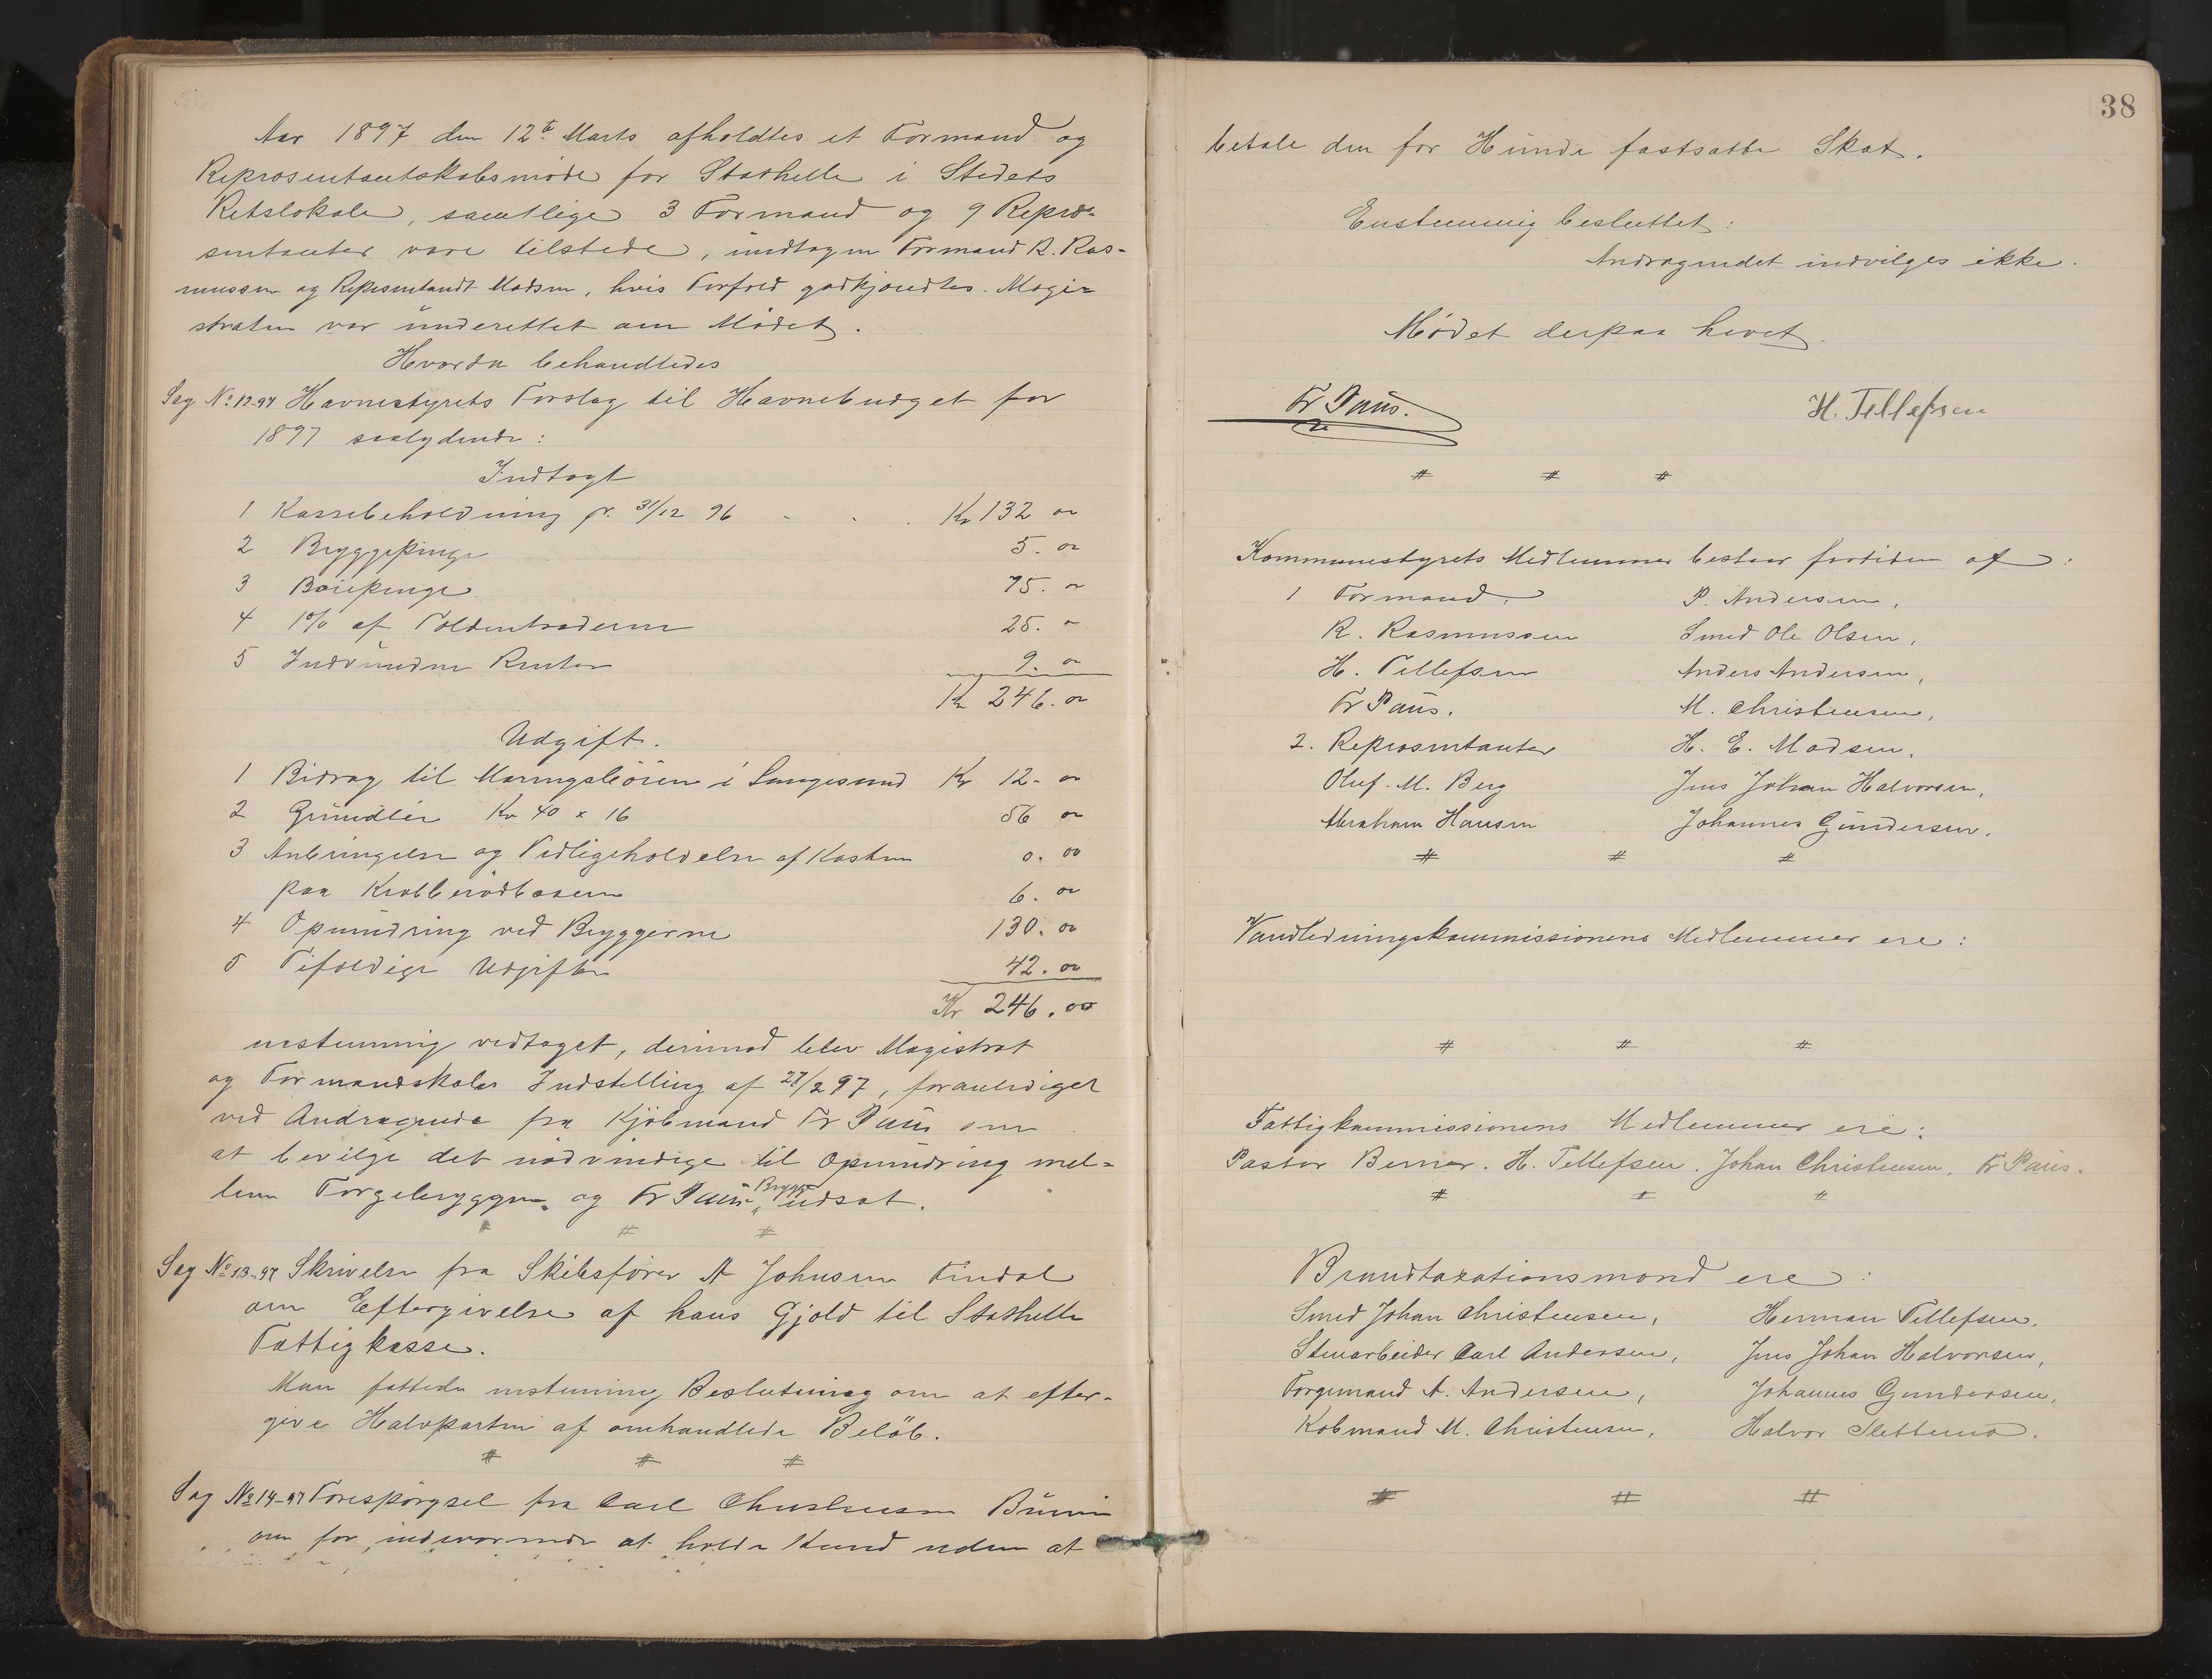 Aar 1897 den 12te Marts afholdtes et Formand og
Repræsentantskabsmöde for Stathelle i Stedets
Retslokale, samtlige 3 Formænd og 9 Repræ-
sentanter vare tilstede, undtagen Formand R. Ras-
mussen og Repræsentandt Madsen, hvis Forfald godkjendtes. Magi-
straten var underettet om Mödet.
Hvorda behandledes
Sag No 12-97 Havnestyrets Forslag til Havnebudget for
1897 saalydende:
Indtægt
1 Kassebeholdning pr. 31/12 96 - . . Kr 132 00
2 Bryggepenge 5. 00
3 Böiepenge 75. 00
4 1% af Toldintraderne 25. 00
5 Indvundne Renter 9. 00
Kr 246. 00
Udgift.
1 Bidrag til Maringsböien i Langesund Kr 12. 00
2 Grundleie Kr 40 x 16 56 00
3 Anbringelse og Vedligeholdelse af Kosten 0. 00
paa Krabberödbaaen 6. 00
4 Opmudring ved Bryggerne 130. 00
5 Tilfældige Udgifter 42. 00
Kr 246. 00
enstemmig vedtaget, derimod blev Magistrat
og Formandskabs Indstilling af 27/2 97, foranlediget
ved Andragende fra Kjöbmand Fr Paus om
at bevilge det nödvendige til Opmudring mel-
lem Torgebryggen og Fr Paus Brygge udsat.
# # #
Sag No 13-97 Skrivelse fra Skibsförer A Johnsen Findal
om Eftergivelse af hans Gjæld til Stathelle
Fattigkasse.
Man fattede enstemmig Beslutning om at efter-
give Halvparten af omhandlede Belöb.
# # #
Sag No 14-97 Forespörgsel fra Carl Christensen
om for indeværende at holde Hund uden at
38
betale den for Hunde fastsatte Skat.
Enstemmig besluttet:
Andragendet indvilges ikke.
Mödet derpaa hævet.
Fr Paus. H. Tellefsen
# # #
Kommunestyrets Medlemmer bestaar fortiden af:
1 Formænd. P. Andersen,
R. Rasmussen Smed Ole Olsen,
H. Tellefsen Anders Andersen,
Fr Paus. M. Christensen,
2. Repræsentanter H. E. Madsen,
Oluf. M. Berg Jens Johan Halvorsen,
Abraham Hansen Johannes Gundersen.
# # #
Vandledningskommissionens Medlemmer ere:
# # #
Fattigkommissionens Medlemmer ere:
Pastor Berner. H. Tellefsen. Johan Christensen. Fr Paus.
# # #
Brandtaxationsmænd ere:
Smed Johan Christensen, Herman Tellefsen.
Stenarbeider Carl Andersen, Jens Johan Halvorsen,
Forgemand A. Andersen, Johannes Gundersen,
Köbmand M. Christensen, Halvor Slettemo.
# # #